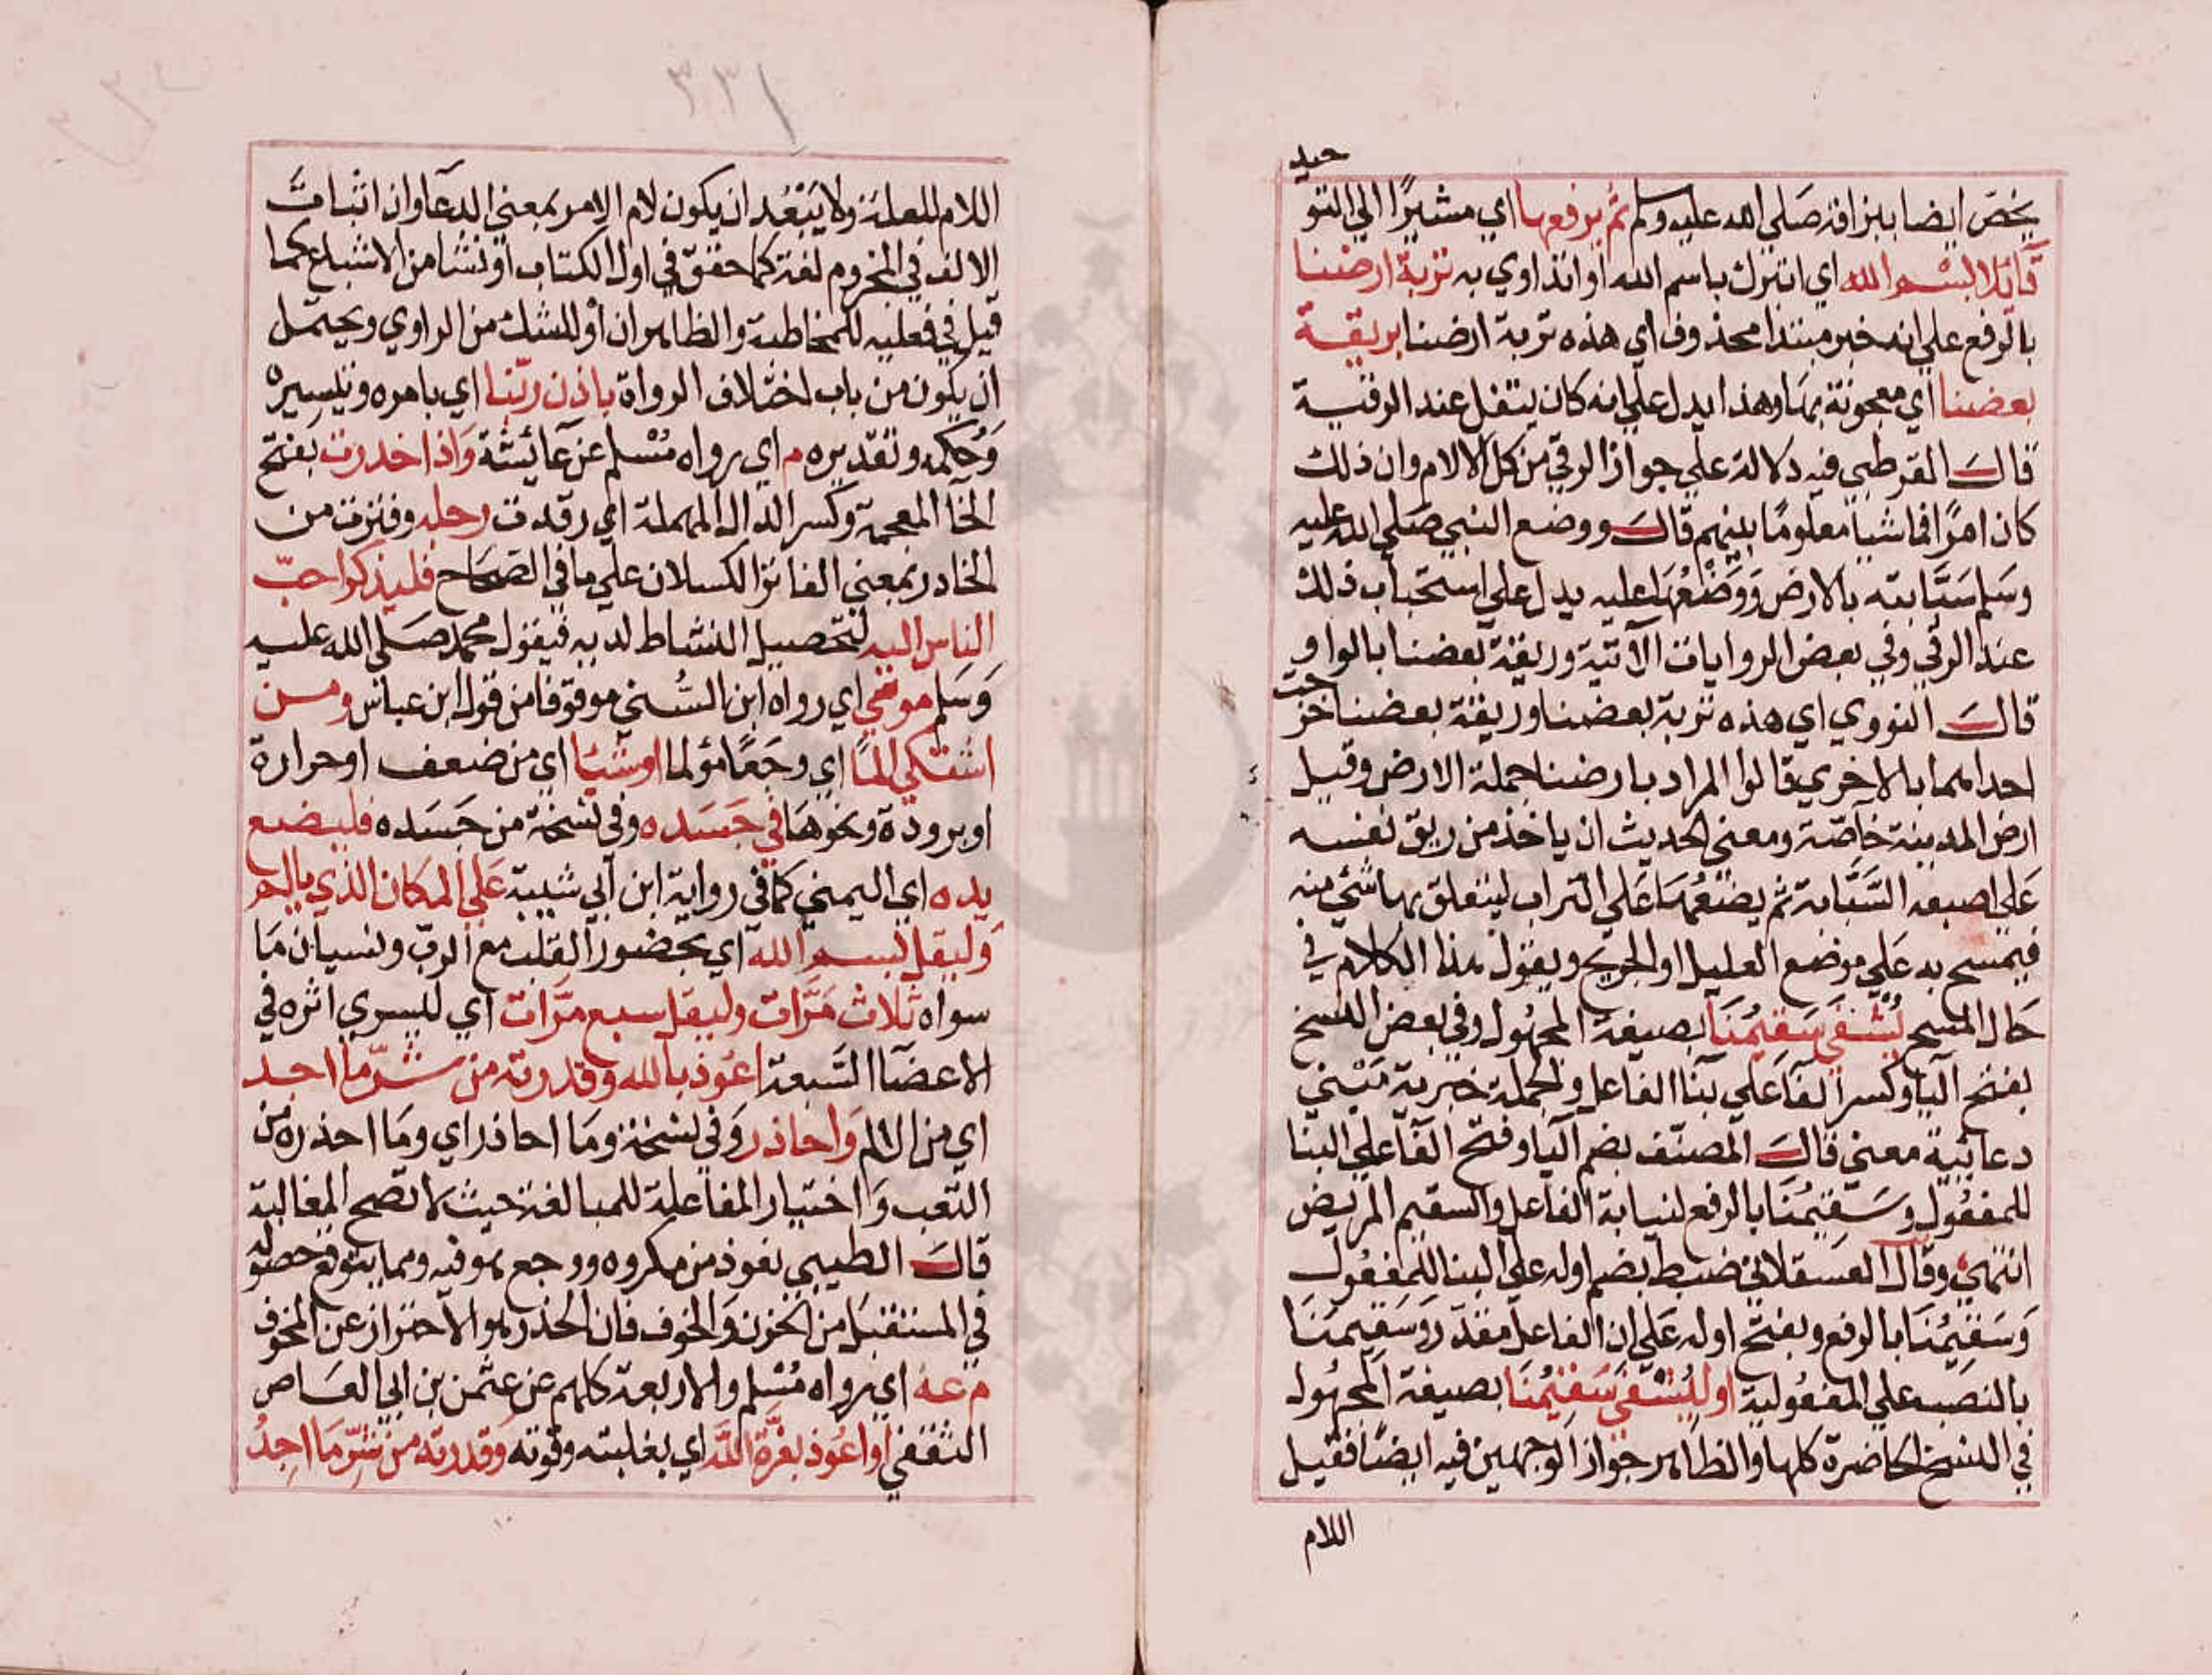 حيد
يخص ايضا ببزاقه صلى الله عليه وسلم ثم يرفعها اي مشيرًا الي التو
قآئلا بسم الله اي اتبرك باسم الله او اتداوي به تربة ارضنا
بالرفع علي انه خبر مبتدا محذوف اي هذه تربة ارضنا بريقة
بعضنا اي معجونة بها وهذا يدل علي انه كان يتفل عند الرقية
قال القرطبي فيه دلالة علي جواز الرقي من كل الالام وان ذلك
كان امرًا فاشيا معلومًا بينهم قال ووضع النبي صلي الله عليه
وسلم سبّابته بالارض ووضعها عليه يدل علي استحباب ذلك
عند الرقي وفي بعض الروايات الآتية وريقة بعضنا بالواو
قال النووي اي هذه تربة بعضنا وريقة بعضنا مزجت
احداهما بالاخري قالوا المراد بارضنا جملة الارض وقيل
ارض المدينة خاصّة ومعني الحديث ان ياخذ من ريق نفسه
علي اصبعه السّبّابة ثم يضعها علي التراب ليتعلق بها شئ منه
فيمسح به علي موضع العليل او الجريح ويقول هذا الكلام في
حال المسح يُشْفَي سَقيمُنَا بصيغة المجهول وفي بعض النسخ
بفتح اليا وكسر الفا علي بنا الفاعل والجملة خبرية مبني
دعائية معني قال المصنّف بضم اليا وفتح الفا علي البنا
للمفعول وسقيمُنا بالرفع لنيابة الفاعل والسقيم المريض
انتهي وقال العسقلاني ضبط بضم اوله علي البنا للمفعول
وسقيمُنا بالرفع وبفتح اوله علي ان الفاعل مقدر وسقيمَنا
بالنصب علي المفعولية او ليُشْفَي سَقيمُنَا بصيغة المجهول
في النسخ الحاضرة كلها والظاهر جواز الوجهين فيه ايضًا فقيل
اللام
٣٣١
اللام للعلة ولا يبعُد ان يكون لام الامر بمعني الدعآ وان اثبات
الالف في المجزوم لغة كما حقق في اول الكتاب او نشا من الاشباع كما
قيل في فعليه للمخاطبة والظاهر ان او للشك من الراوي ويحتمل
ان يكون من باب اختلاف الرواة باذن ربّنا اي بامره وتيسيره
وحُكمه وتقديره م اي رواه مسْلم عن عآئشة وَاذا خدرت بفتح
الخآ المعجمة وكسر الدال المهملة اي رقدت رجله وفترت من
الخادر بمعني الفاتر الكسلان علي ما في الصحاح فليذكر احبّ
الناس اليه لتحصيل النشاط لديه فيقول محمد صلى الله عليه
وَسَلم مو مي اي رواه ابن السُّني موقوفا من قول ابن عباس ومن
اشتكي المًا اي وجَعًا مؤلما او شيئا اي من ضعف او حرارة
او برودة ونحوهَا في جَسَده وفي نسخة من جَسَده فليضع
يده اي اليمني كما في رواية ابن ابي شيبة علي المكان الذي يالم
وَليقل بسم الله اي بحضور القلب مع الربّ ونسيان مَا
سواه ثلاث مَرَّات وليقل سبع مرّات اي ليسري اثره في
الاعضآ السّبعة اعُوذ بالله وقدرته من شرّ ما اجد
اي من الالم وَاحاذر وفي نسخة ومَا احاذر اي ومَا احذره من
التعب وَاختيار المفاعلة للمبالغة حيث لا تصح المغالبة
قال الطيبي تعوذ من مكروه ووجع هو فيه ومما يتوقع حصوله
في المستقبل من الحزن وَالخوف فان الحذر هو الاحتراز عن المخوف
م عه اي رواه مُسْلم والاربعة كلهم عن عثمن بن ابي العَاص
الثقفي او اعُوذ بعزّة الله اي بغلبته وقوته وَقدرته من شرّ مَا اجِدُ